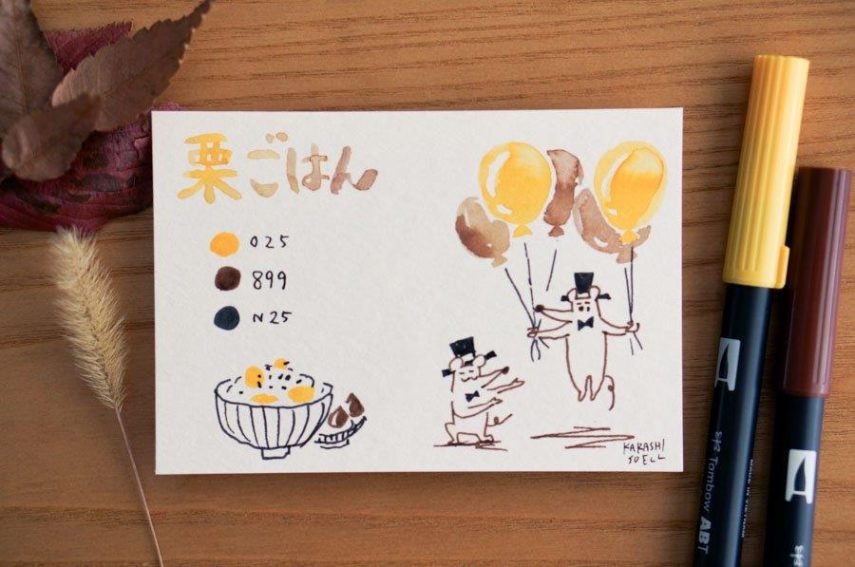 栗ごはん
025
899
N25
KARASHI
SOELL
Tombow ABT